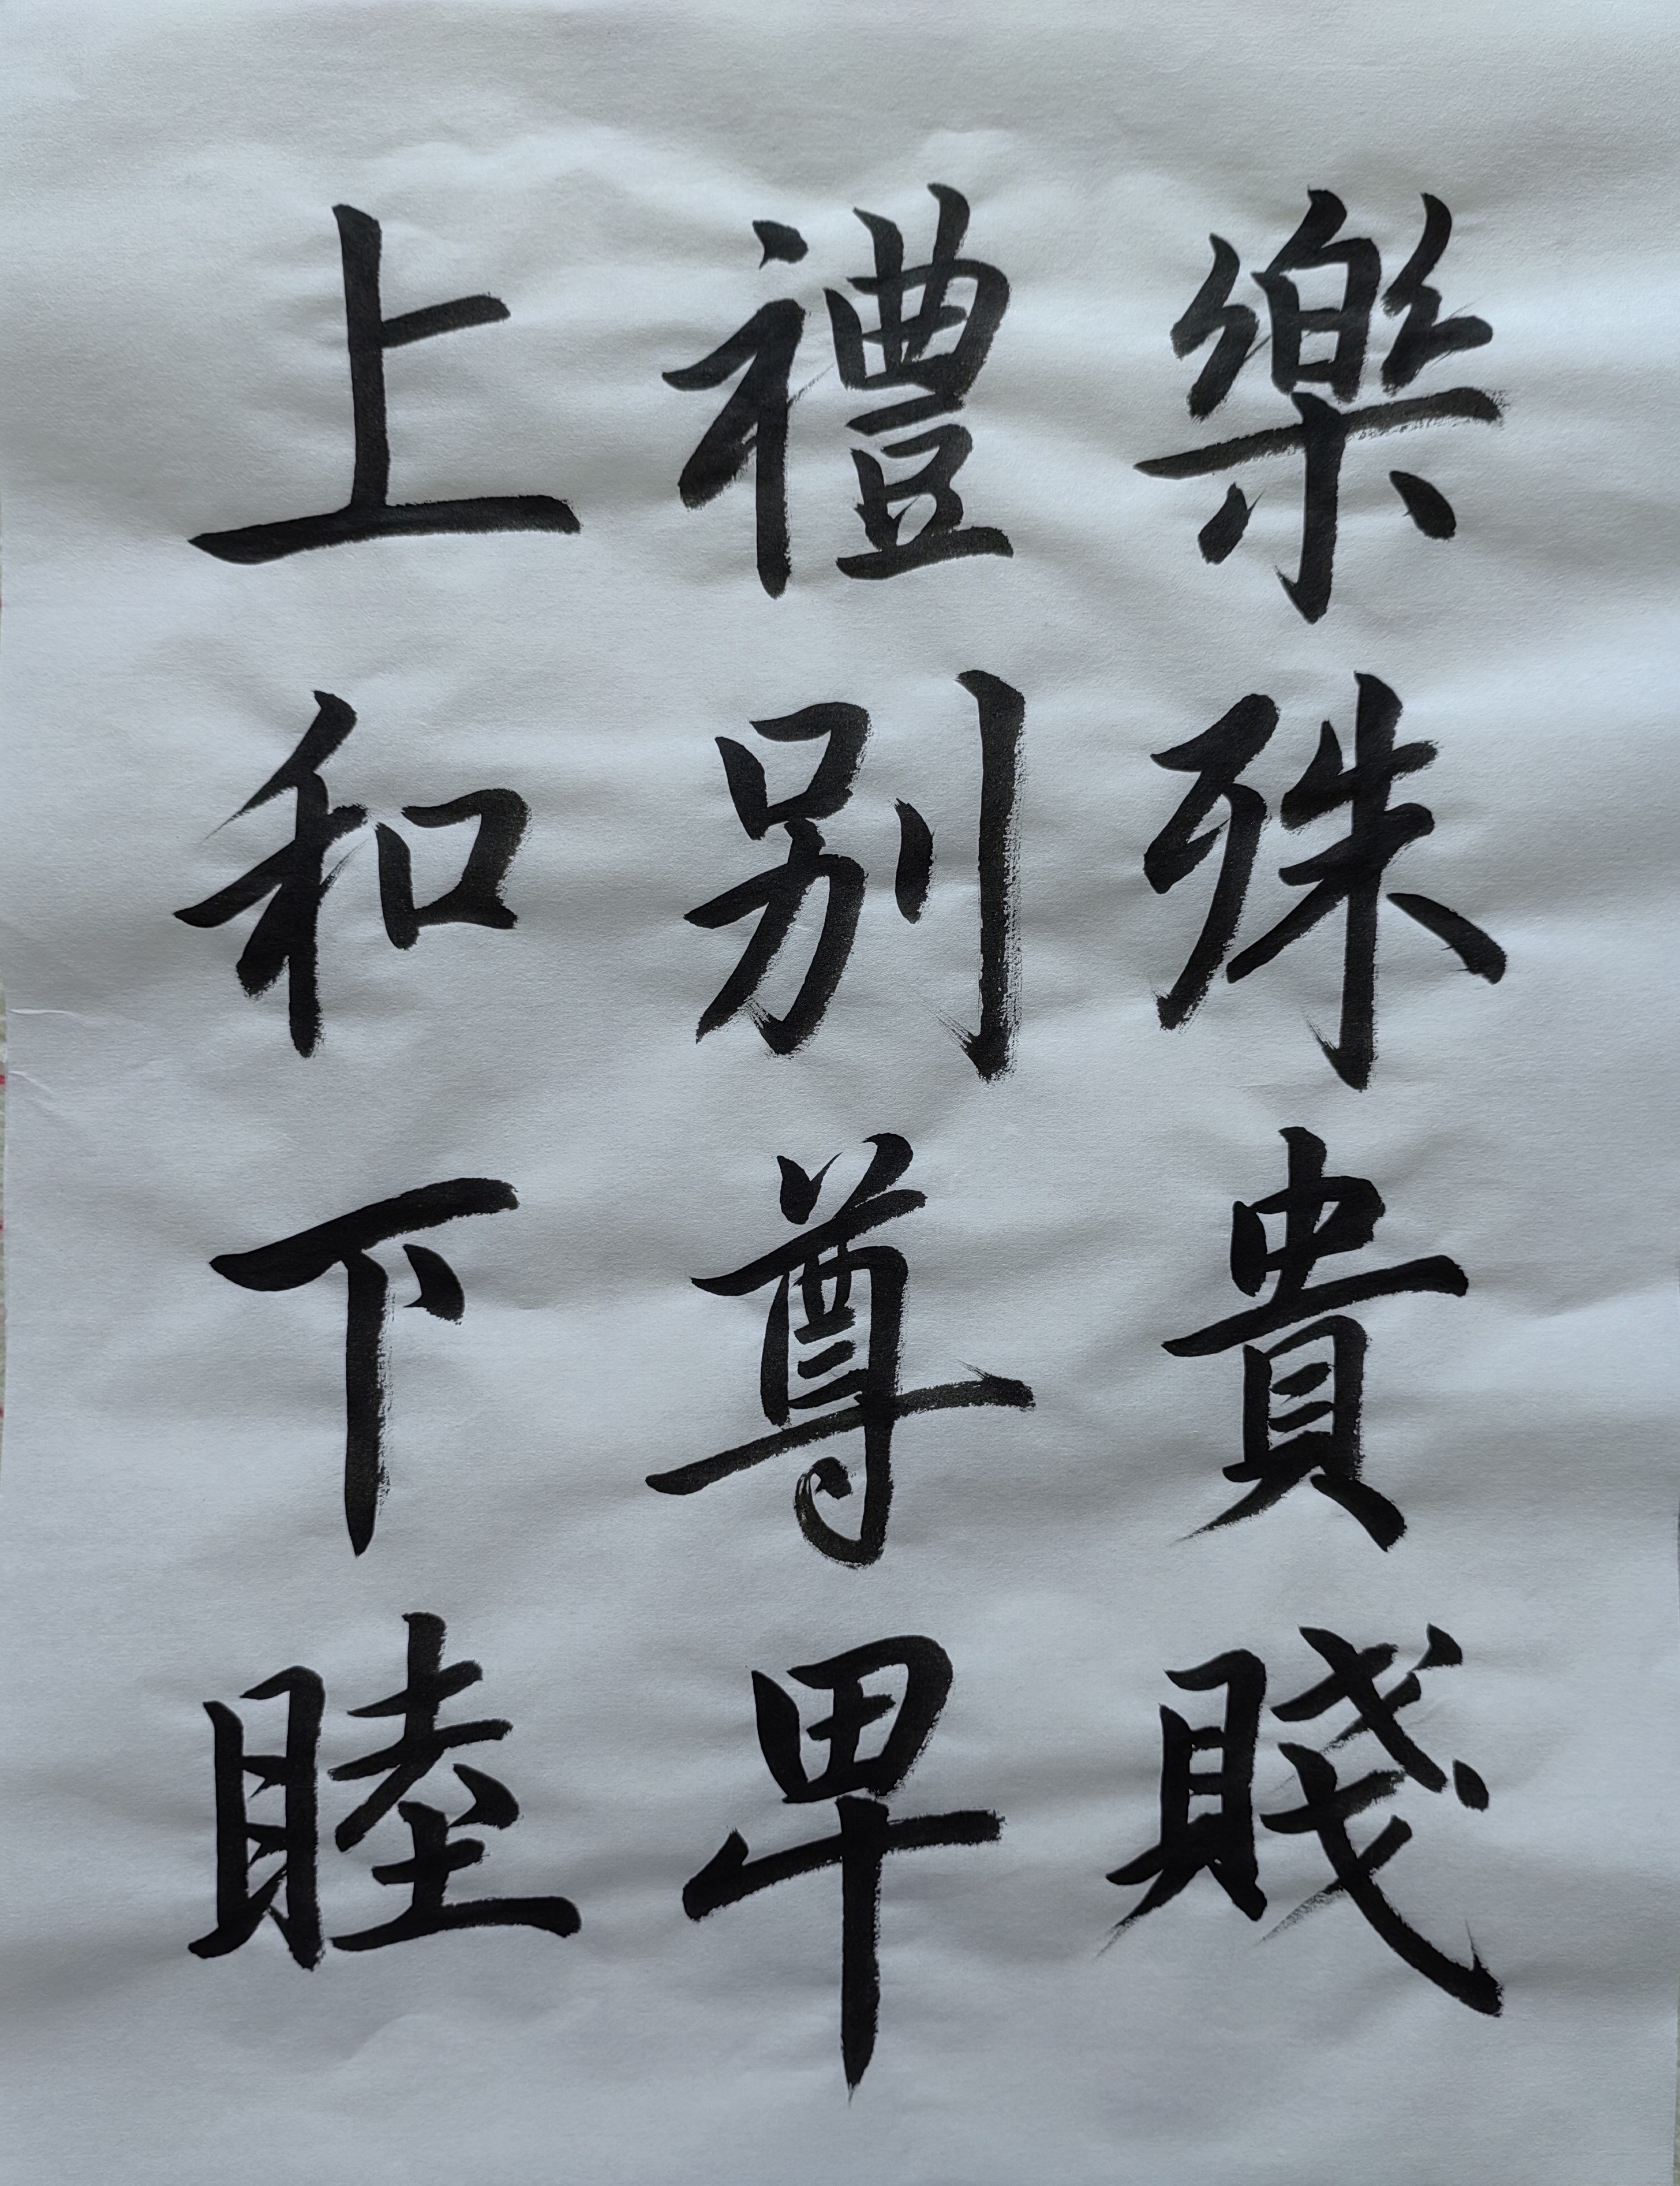 樂殊貴賤
禮別尊卑
上和下睦